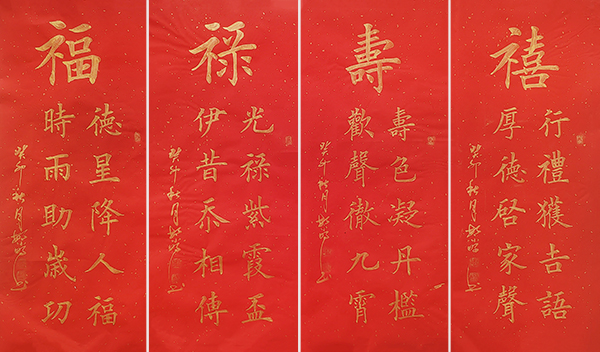 福
德星降人福
時雨助歲功
癸卯秋月
祿
光祿紫霞盃
伊昔忝相傳
癸卯秋月
壽
壽色凝丹檻
歡聲徹九霄
癸卯秋月
禧
行禮獲吉語
厚德啓家聲
癸卯秋月